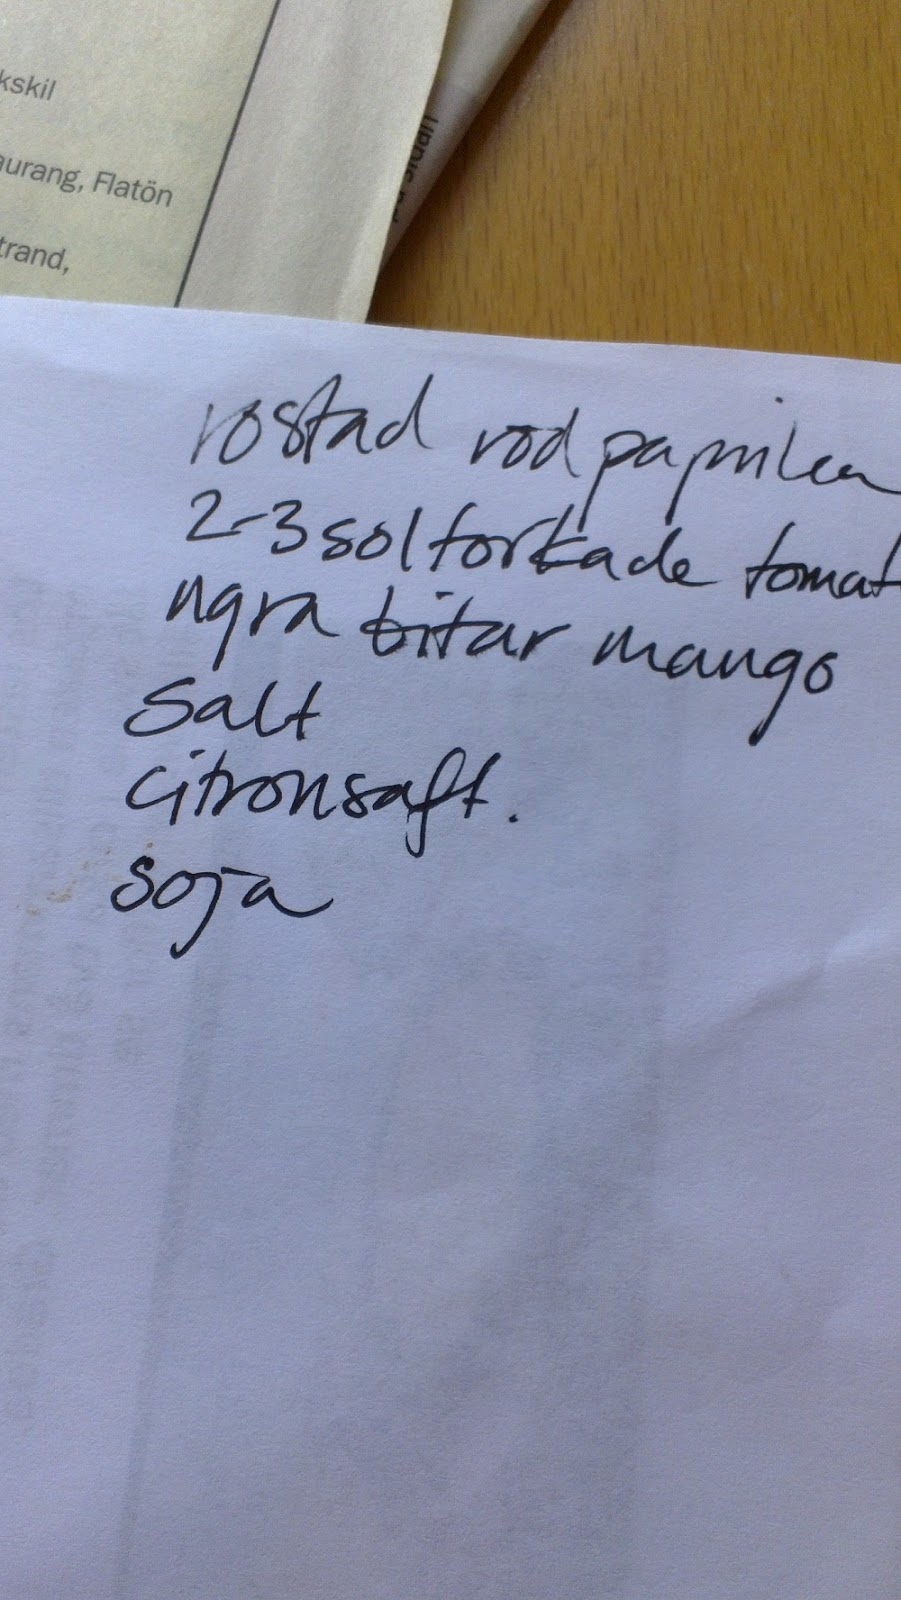 kskil
aurang, Flatön
trand,
rostad röd paprika
2-3 soltorkade tomat
ngra bitar mango
Salt
citronsaft.
soja